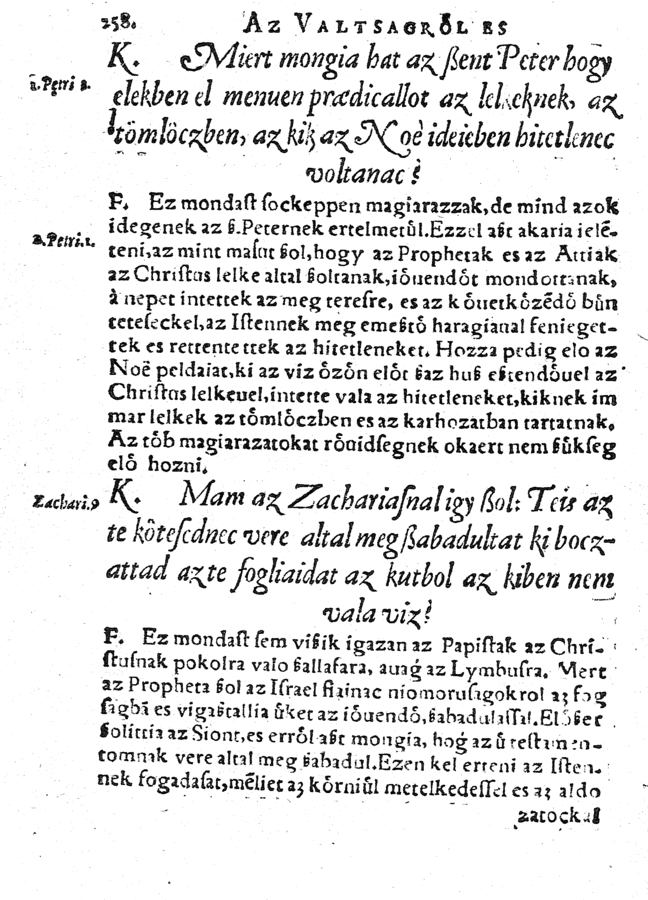 258. AZ VALTSAGRŮL ES
K. Miert mongia hat az ßent Peter hogy
1. Petri 3.
elekben el menuen prædicallot az lelkeknek, az
tömlöczben, az kik az Noè ideieben hitetlenec
voltanac?
F. Ez mondaſt ſockeppen magiarazzak, de mind azok
idegenek az ß. Peternek ertelmetůl. Ezzel aßt akaria ielē-
2. Petri. 1.
teni, az mint maſut ßol, hogy az Prophetak es az Attiak
az Chriſtus lelke altal ßoltanak, iőuendőt mondottanak,
à nepet intettek az meg tereſre, es az kőuetkőzēdő bůn
teteſeckel, az Iſtennek meg emeßtő haragiaual fenieget-
tek es rettentettek az hitetleneket. Hozza pedig elo az
Noë peldaiat, ki az viz őzőn előt ßaz huß eßtendőuel az
Chriſtus lelkeuel, intette vala az hitetleneket, kiknek im
mar lelkek az tőmlőczben es az karhozatban tartatnak.
Az tőb magiarazatokat rőuidſegnek okaert nem ßůkſeg
elő hozni.
Zachari. 9
K. Mam az Zachariaſnal igy ßol: Te is az
te kôteſednec vere altal meg ßabadultat ki bocz-
attad az te fogliaidat az kutbol az kiben nem
vala viz?
F. Ez mondaſt ſem vißik igazan az Papiſtak az Chri-
ſtuſnak pokolra valo ßallaſara, auaǵ az Lymbuſra. Mert
az Propheta ßol az Iſrael fiainac niomoruſagokrol aʒ fog
ſagbā es vigaßtallia ůket az iőuendő, ßabadulaſſal. Előßer
ßolittia az Siont, es erről aßt mongia, hoǵ az ů teſtamen-
tomnak vere altal meg ßabadul. Ezen kel erteni az Iſten-
nek fogadaſat, mēliet aʒ kőrniůl metelkedeſſel es aʒ aldo
zatockal